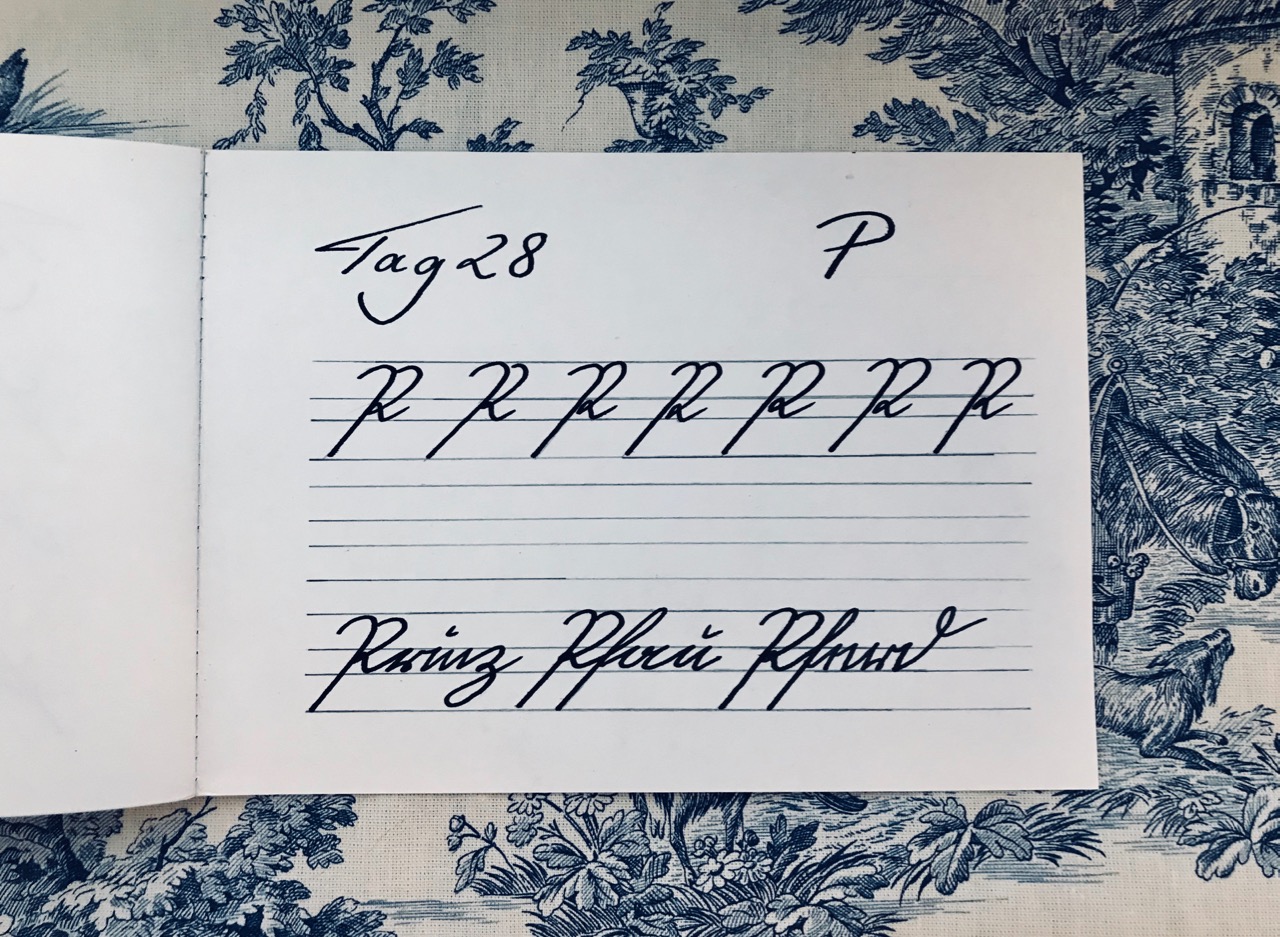 Tag 28 P
P P P P P P P
Prinz Pfau Pferd